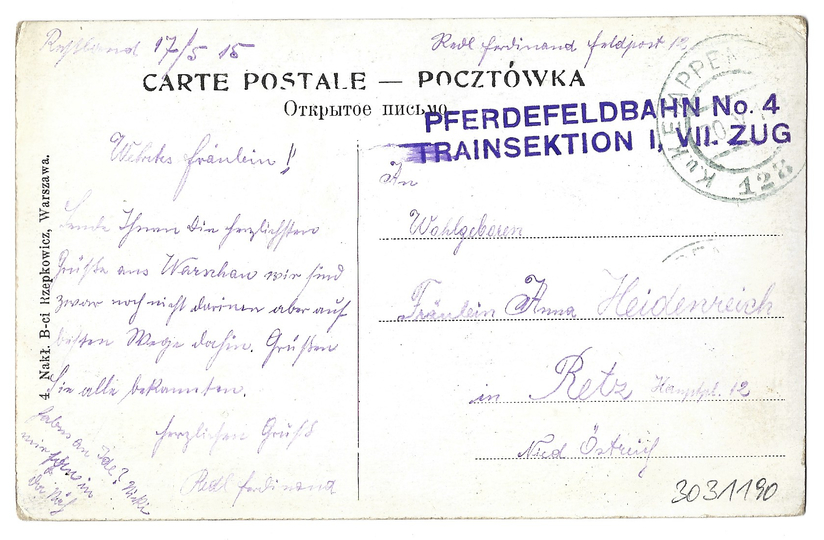 Rußland 17/5 15
Redl Ferdinand Feldpost 12
CARTE POSTALE — POCZTÓWKA
Открытое письмо
PFERDEFELDBAHN No. 4
TRAINSEKTION I, VII. ZUG
K.u.K. ETAPPE
128
Wehrtes Fräulein!!
Sende Ihnen die herzlichsten
Grüße aus Warschau wir sind
zwar noch nicht darinen aber auf
besten Wege dahin. Grüßen
Sie alle bekannten.
herzlichen Gruß
Redl Ferdinand
An
Wohlgeboren
Fräulein Anna Heidenreich
in Retz Hauptpl. 12
Nied Östreich
3031190
4. Nakł. B-ci Rzepkowicz, Warszawa.